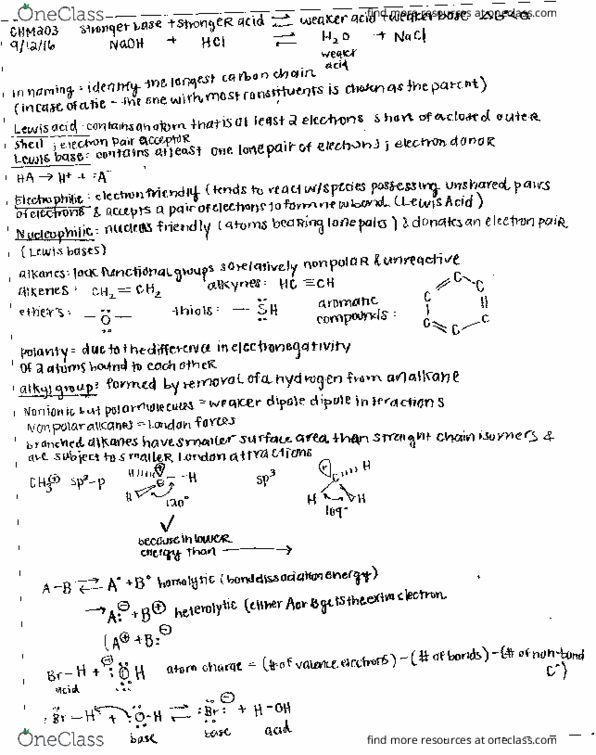 OneClass
find more resources at oneclass.com
CHM203 stronger base + stronger acid ⇌ weaker acid + weaker base
9/12/16 NaOH + HCl H2O + NaCl
weaker acid
in naming = identify the longest carbon chain
(in case of a tie - the one with most constituents is chosen as the parent)
Lewis acid: contains an atom that is at least 2 electrons short of a closed outer
shell; electron pair acceptor
Lewis base: contains at least one lone pair of electrons; electron donor
HA → H+ + :A-
Electrophilic: electron friendly (tends to react w/ species possessing unshared pairs
of electrons & accepts a pair of electrons to form new bond (Lewis Acid)
Nucleophilic: nucleus friendly (atoms bearing lone pairs) & donates an electron pair
(Lewis bases)
alkanes: lack functional groups so relatively nonpolar & unreactive
alkenes: CH2=CH2 alkynes: HC≡CH
ethers: -O- thiols: -SH aromatic compounds: C C C C C C
polarity = due to the difference in electronegativity
of 2 atoms bound to each other
alkyl group: formed by removal of a hydrogen from an alkane
Nonionic but polar molecules = weaker dipole dipole interactions
Nonpolar alkanes = London forces
branched alkanes have smaller surface area than straight chain isomers &
are subject to smaller London attractions
CH3⊕ sp2-p H H C -H 120° sp3 C H H H 109°
because in lower
energy than →
A-B ⇌ A• + B• homolytic (bond dissociation energy)
→ A:⊖ + B⊕ heterolytic (either A or B gets the extra electron
(A⊕ + B:⊖
Br-H + :OH atom charge = (# of valence electrons) - (# of bonds) - (# of non-bond e-)
acid
:Br-H + :O-H ⇌ :Br:⊖ + H-OH
base base acid
OneClass
find more resources at oneclass.com